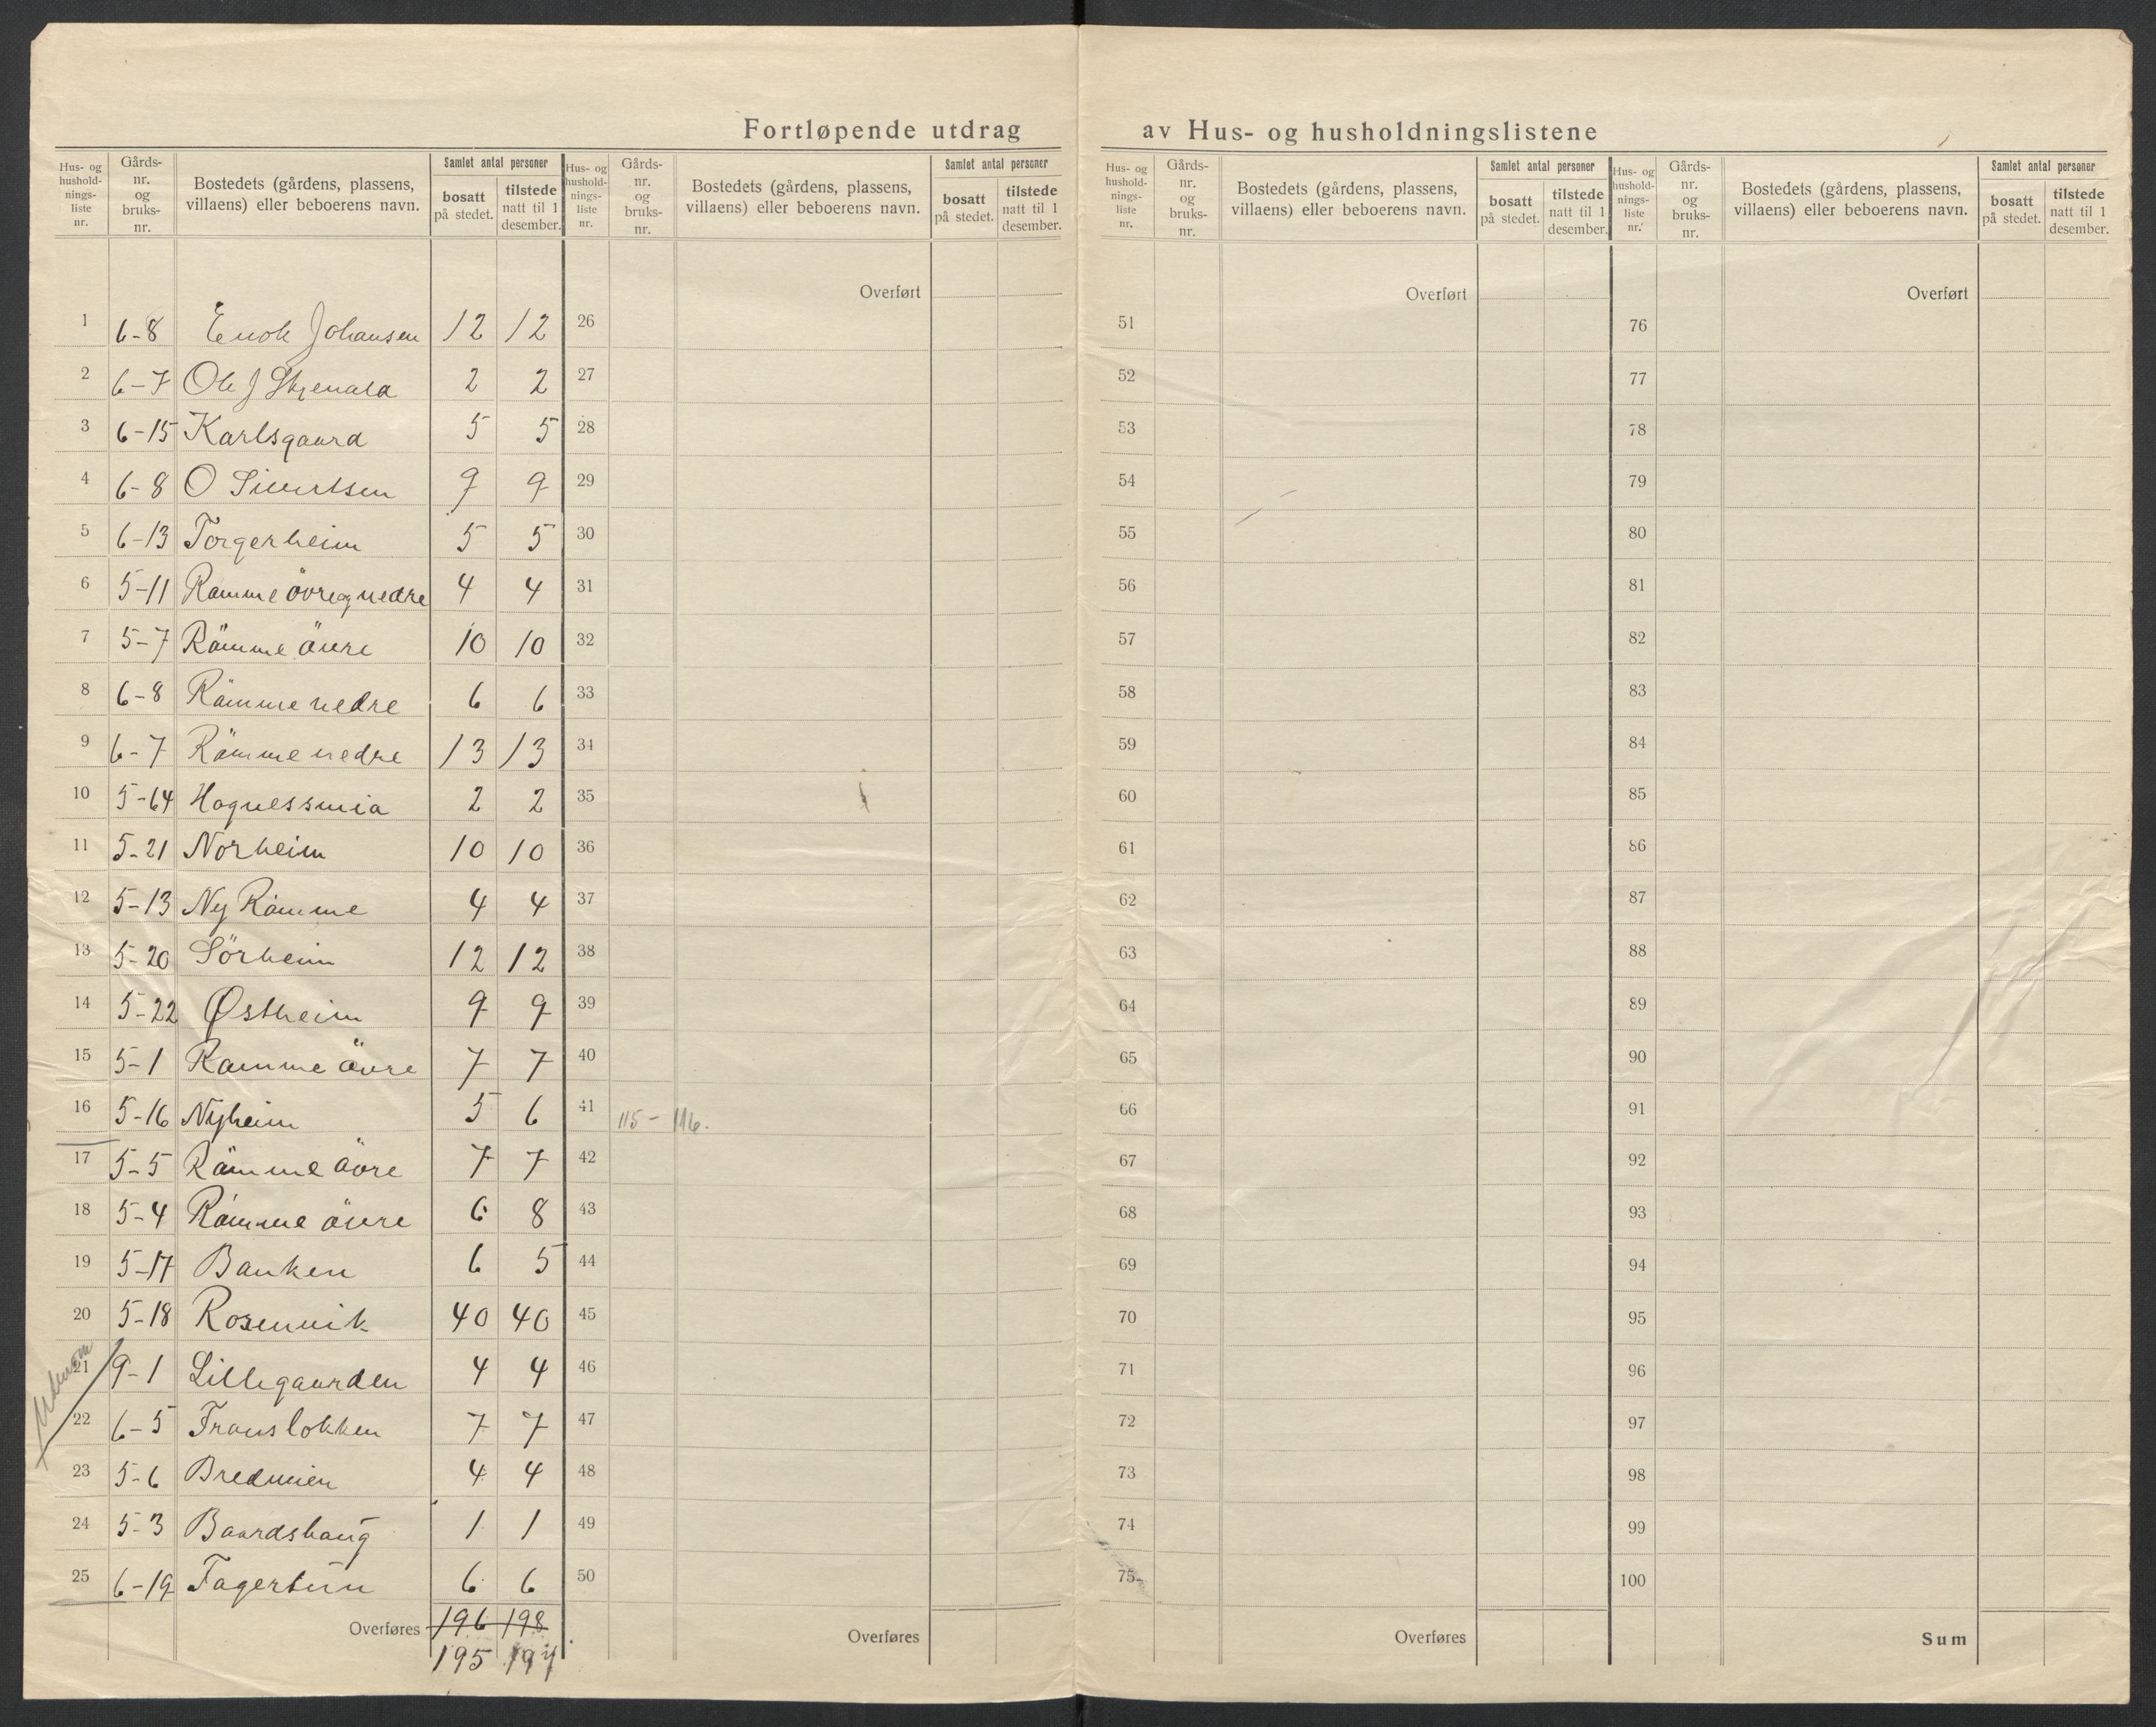 Fortløpende utdrag av Hus- og husholdningslistene
Hus- og husholdnings-liste nr. | Gårds-nr. og bruks-nr. | Bostedets (gårdens, plassens, villaens) eller beboerens navn. | Samlet antal personer | bosatt på stedet. | tilstede natt til 1 desember.
Hus- og husholdnings-liste nr. | Gårds-nr. og bruks-nr. | Bostedets (gårdens, plassens, villaens) eller beboerens navn. | Samlet antal personer | bosatt på stedet. | tilstede natt til 1 desember.
Hus- og husholdnings-liste nr. | Gårds-nr. og bruks-nr. | Bostedets (gårdens, plassens, villaens) eller beboerens navn. | Samlet antal personer | bosatt på stedet. | tilstede natt til 1 desember.
Hus- og husholdnings-liste nr. | Gårds-nr. og bruks-nr. | Bostedets (gårdens, plassens, villaens) eller beboerens navn. | Samlet antal personer | bosatt på stedet. | tilstede natt til 1 desember.
Overført Overført Overført
1 6-8 Enok Johansen 12 12 26 51 76
2 6-7 Ole J 2 2 27 52 77
3 6-15 Karlsgaard 5 5 28 53 78
4 6-8 O Sivertsen 9 9 29 54 79
5 6-13 Torgerheim 5 5 30 55 80
6 5-11 Ramme övre og nedre 4 4 31 56 81
7 5-7 Römme övre 10 10 32 57 82
8 6-8 Römme nedre 6 6 33 58 83
9 6-7 Römme nedre 13 13 34 59 84
10 5-64 Hognessmia 2 2 35 60 85
11 5-21 Norheim 10 10 36 61 86
12 5-13 Ny Römme 4 4 37 62 87
13 5-20 Sörheim 12 12 38 63 88
14 5-22 Østheim 9 9 39 64 89
15 5-1 Ramme övre 7 7 40 65 90
16 5-16 Nyheim 5 6 41 115-116. 66 91
17 5-5 Römme övre 7 7 42 67 92
18 5-4 Römme övre 6 8 43 68 93
19 5-17 Banken 6 5 44 69 94
20 5-18 Rosenvik 40 40 45 70 95
21 9-1 Lillegaarden 4 4 46 71 96
22 6-5 Franslokken 7 7 47 72 97
23 5-6 Bredmien 4 4 48 73 98
24 5-3 Baardshaug 1 1 49 74 99
25 6-19 Fagertun 6 6 50 75 100
Overføres 196 198 Overføres Overføres Sum
195